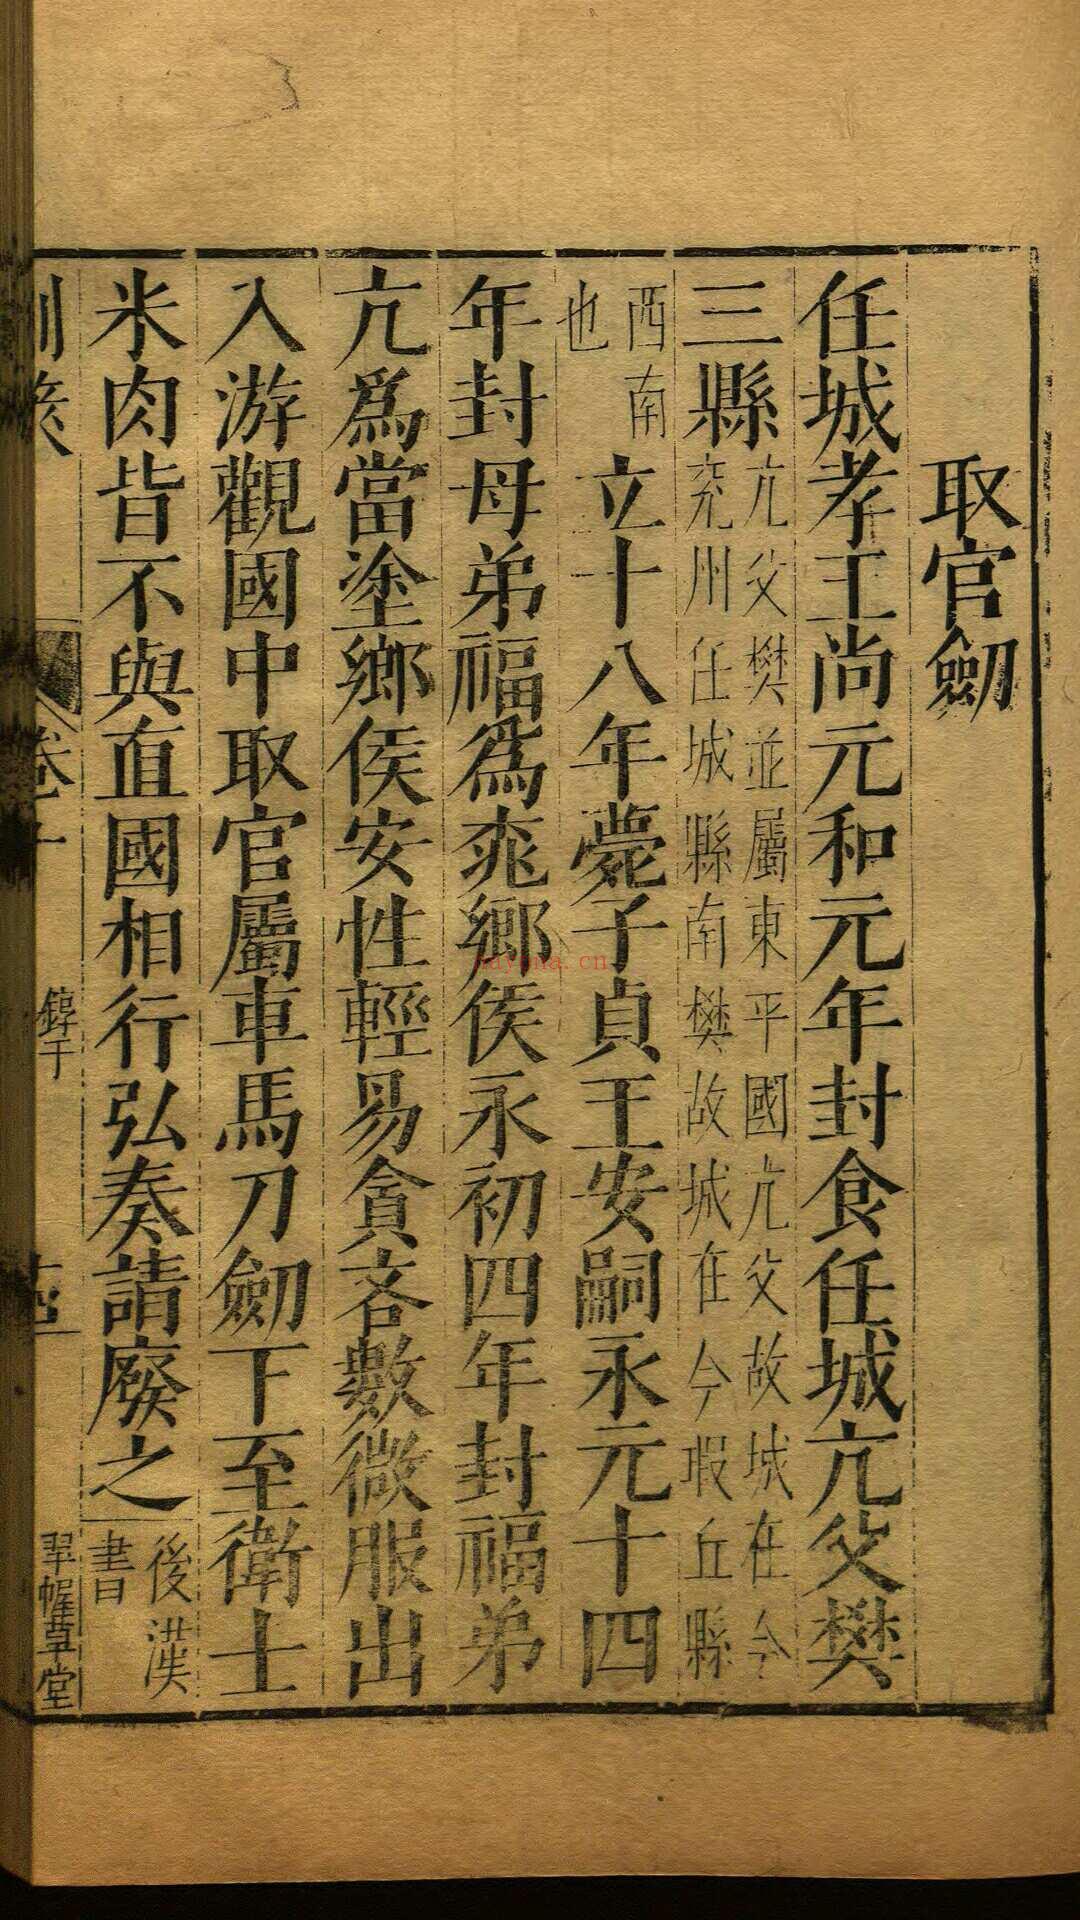 取官劒
任城孝王尚元和元年封食任城亢父樊
三縣亢父樊並屬東平國亢父故城在今兗州任城縣南樊故城在今瑕丘縣
西南也立十八年薨子貞王安嗣永元十四
年封母弟福爲桃鄉侯永初四年封福弟
亢爲當塗鄉侯安性輕易貪吝數微服出
入游觀國中取官屬車馬刀劒下至衛士
米肉皆不與直國相行弘奏請廢之後漢書
卷
翠幄草堂
nayona.cn